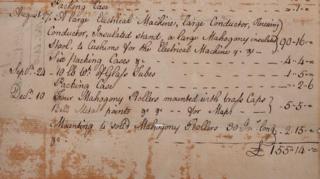 Packing Case
August 7. A Large Electrical Machine, Large Conductor,
Conductor, Insulated stand, a large Mahogany insulated
Stool, 4 Cushons for the Electrical Machine 90-16-
Packing Cases 4-4-
Sept. 24 - 10 lb Glass Tubes 1-5-
Packing Case -2-6
Dec. 10 Four Mahogany Rollers mounted with brass Caps
Metal points for Maps 5-5-
Mounting 4 solid Mahogany Rollers long 2.15-
£ 155-14-